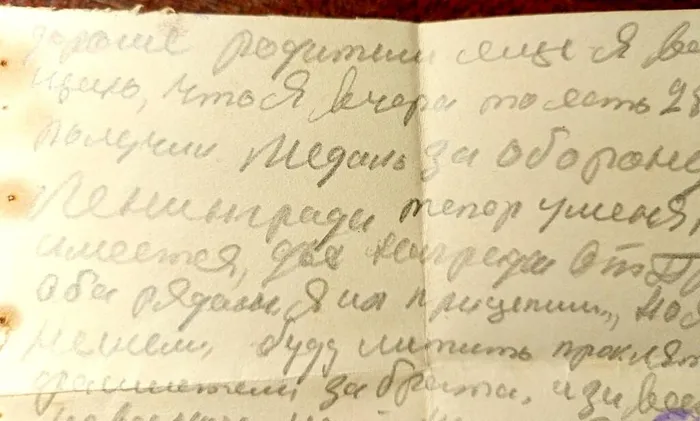 дорогие родители еще я ва
щаю, что я вчера тоесть 28
получил медаль за оборону
Ленинграда тепор уменя
имеется, две награды от
оба рядом я их прицепил,
буду мстить проклят
за брата, и за все